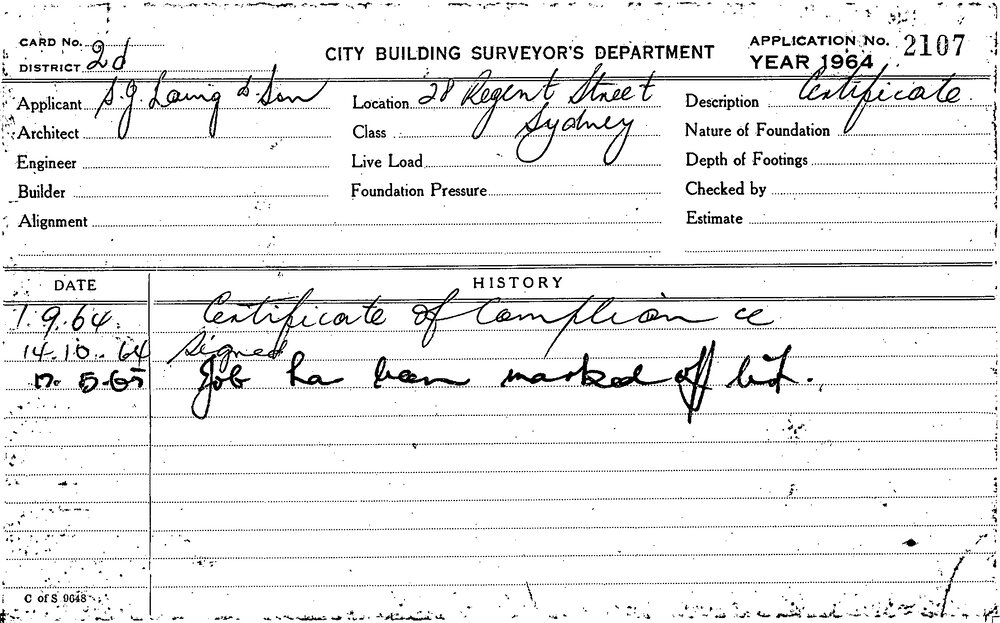 CARD No.
CITY BUILDING SURVEYOR'S DEPARTMENT
APPLICATION No. 2107
DISTRICT 2d
YEAR 1964
Applicant S.J. Laing & Son
Location 28 Regent Street
Description Certificate
Architect
Class Sydney
Nature of Foundation
Engineer
Live Load
Depth of Footings
Builder
Foundation Pressure
Checked by
Alignment
Estimate
DATE
HISTORY
1.9.64. Certificate of Compliance
14.10.64 signed
17.5.65 Job has been marked off list.
C of S 9648